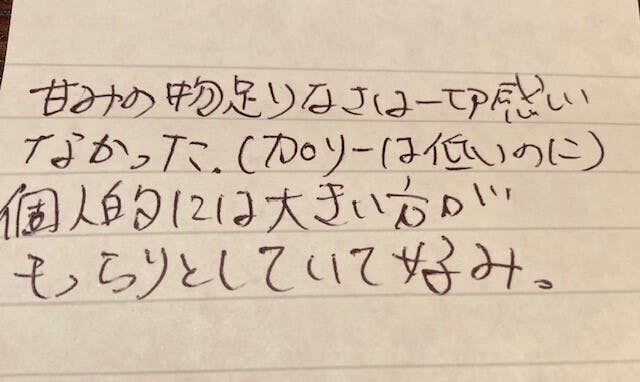 甘みの物足りなさは一切感じ
なかった。(カロリーは低いのに)
個人的には大きい方が
もっちりとしていて好み。